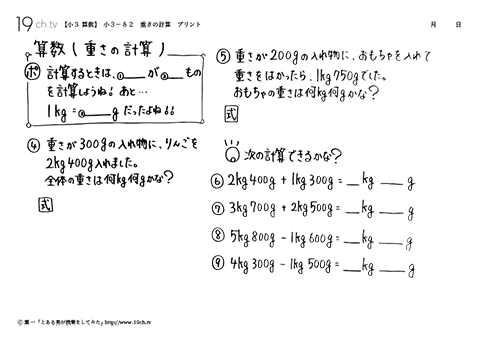 19ch.tv 【小3 算数】 小3-82 重さの計算 プリント 月 日
算数 ( 重さの計算 )
ポ 計算するときは、①___が②___もの
を計算しようね！あと…
1kg = ③___gだったよね！！
④ 重さが300gの入れ物に、りんごを
2kg400g入れました。
全体の重さは何kg何gかな？
式
⑤ 重さが200gの入れ物に、おもちゃを入れて
重さをはかったら、1kg750gでした。
おもちゃの重さは何kg何gかな？
式
次の計算できるかな？
⑥ 2kg400g + 1kg300g = __kg ___g
⑦ 3kg700g + 2kg500g = __kg ___g
⑧ 5kg800g - 1kg600g = __kg ___g
⑨ 4kg300g - 1kg500g = __kg ___g
© 葉一「とある男が授業をしてみた」http://www.19ch.tv